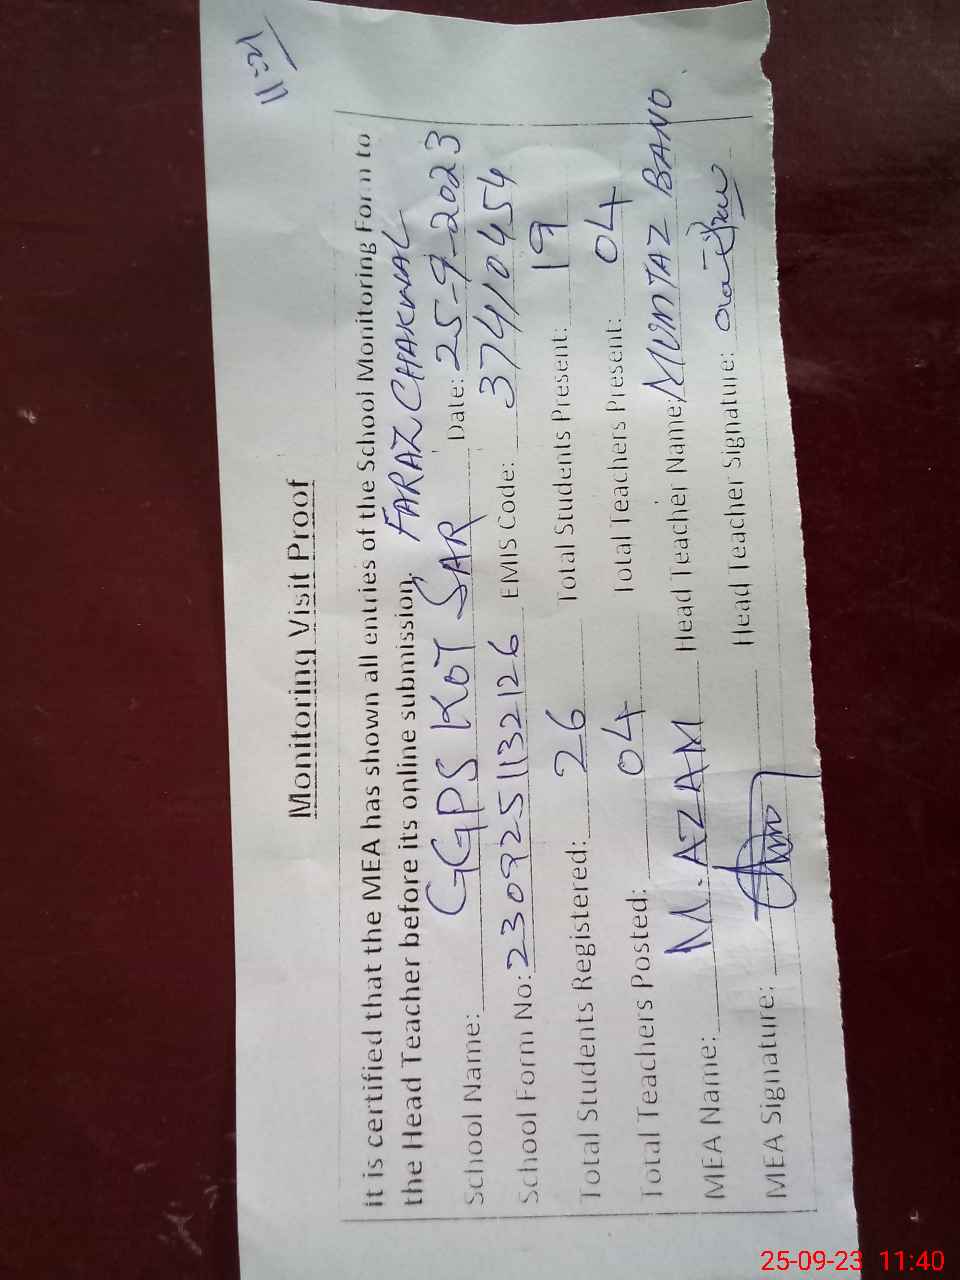 11:21
Monitoring Visit Proof
it is certified that the MEA has shown all entries of the School Monitoring Form to
the Head Teacher before its online submission. FARAZ CHAKWAL
School Name: GGPS KOT SAR Date: 25-9-2023
School Form No: 2309251132126 EMIS Code: 37410454
Total Students Registered: 26 Total Students Present: 19
Total Teachers Posted: 04 Total Teachers Present: 04
MEA Name: M. AZAM Head Teacher Name: MUMTAZ BANO
MEA Signature: Head Teacher Signature:
25-09-23 11:40